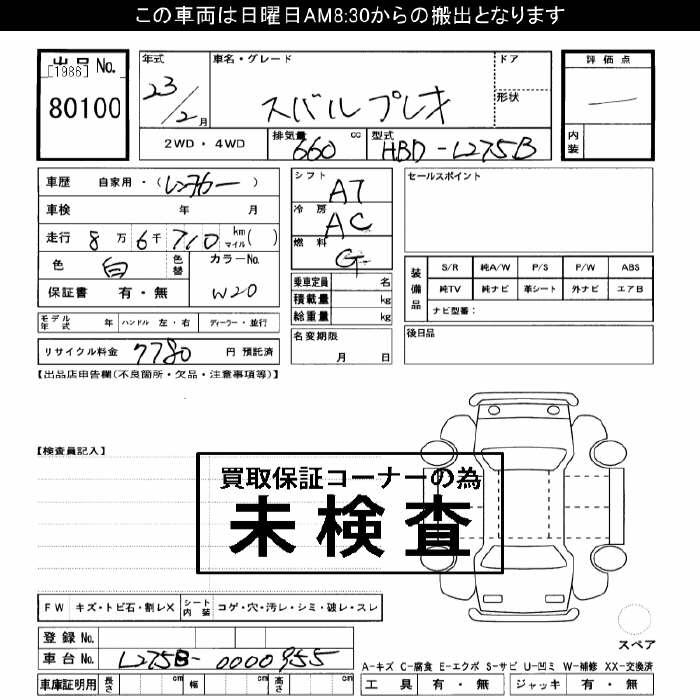 この車両は日曜日AM8:30からの搬出となります
出品 No.
[1986]
80100
年式 23/2月
車名・グレード スバルプレオ
ドア
形状
2WD・4WD
排気量 660 cc
型式 HBD-L275B
評価点 —
内装
車歴 自家用・(レンタカー)
車検 年 月
走行 8万6千710 km マイル( )
色 白 色替
カラーNo. W20
保証書 有・無
シフト AT
冷房 AC
燃料 G
乗車定員 名
積載量 kg
総重量 kg
セールスポイント
装備品
S/R 純A/W P/S P/W ABS
純TV 純ナビ 革シート 外ナビ エアB
ナビ型番:
モデル年式 年 ハンドル 左・右 ディーラー・並行
リサイクル料金 7780 円 預託済
名変期限
月 日
後日品
【出品店申告欄(不良箇所・欠品・注意事項等)】
【検査員記入】
買取保証コーナーの為
未検査
FW キズ・トビ石・割レX シート内装 コゲ・穴・汚レ・シミ・破レ・スレ
スペア
登録 No.
車台 No. L275B-0000955
車庫証明用 長さ cm 幅 cm 高さ cm
A-キズ C-腐食 E-エクボ S-サビ U-凹ミ W-補修 XX-交換済
工具 有・無 ジャッキ 有・無